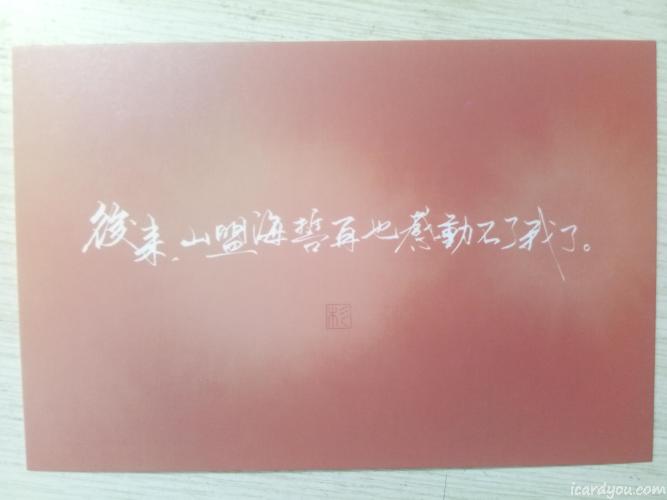 後来，山盟海誓再也感動不了我了。
杉
icardyou.com